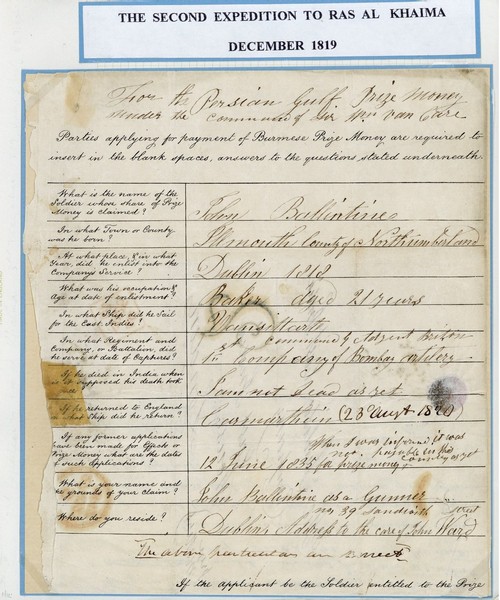 THE SECOND EXPEDITION TO RAS AL KHAIMA
DECEMBER 1819
For the Persian Gulf Prize Money
under the command of Sir Wm
Parties applying for payment of Burmese Prize Money are required to
insert in the blank spaces, answers to the questions stated underneath.
What is the name of the
Soldier whose share of Prize
Money is claimed?
John Ballintine
In what Town or County
was he born?
County of Northumberland
At what place, & in what
Year, did he enlist into the
Company's Service?
Dublin 1818
What was his occupation &
Age at date of enlistment?
Baker aged 21 years
In what Ship did he Sail
for the East Indies?
Vansittart
In what Regiment and
Company, or Battalion, did
he serve at date of Captures?
1st Company of Bombay Artillery
If he died in India, when
is it supposed his death took
place
I am not dead as yet
If he returned to England
what Ship did he return?
Carmarthen (23 Augt
If any former applications
have been made for Effects or
Prize Money what are the dates
of such applications?
When I was informed it was
not payable in the
as yet
12 June 1835 for prize money
What is your name and
the grounds of your claim?
John Ballintine as a Gunner
Where do you reside?
No 39 Street
Dublin Address to the care of John Ward
The above particulars are
If the applicant be the Soldier entitled to the Prize